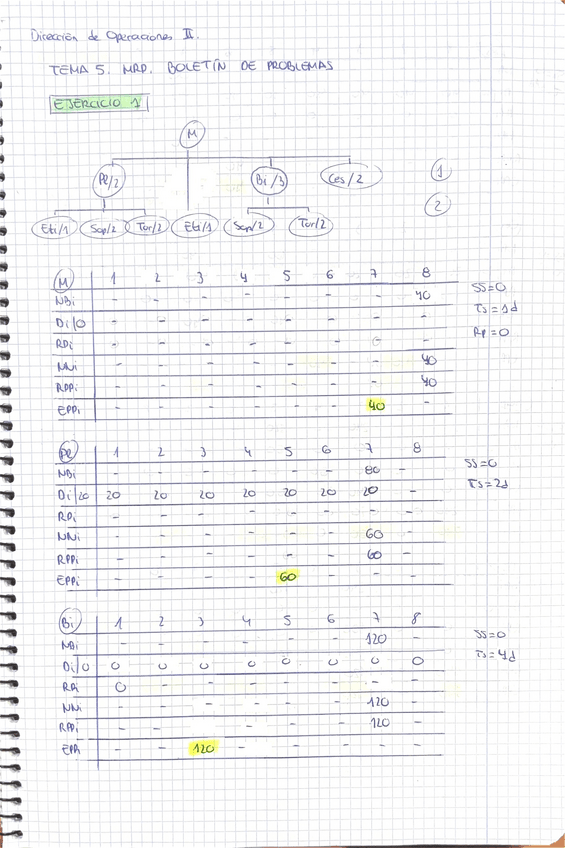 Dirección de Operaciones II.
TEMA 5. MRP. BOLETÍN DE PROBLEMAS
EJERCICIO 1
M
Pl/2 Bi/3 Ces/2 1
Eti/1 Sop/2 Tor/2 Eti/1 Sop/2 Tor/2 2
M 1 2 3 4 5 6 7 8 SS=0
NBi - - - - - - - 40 TS=1d
Di/0 - - - - - - - - Rp=0
RPi - - - - - - -
NNi - - - - - - - 40
RPPi - - - - - - - 40
EPPi - - - - - - 40 -
Pl 1 2 3 4 5 6 7 8 SS=0
NBi - - - - - - 80 - TS=2d
Di/20 20 20 20 20 20 20 20 -
RPi - - - - - - - -
NNi - - - - - - 60 -
RPPi - - - - - - 60 -
EPPi - - - - 60 - - -
Bi 1 2 3 4 5 6 7 8 SS=0
NBi - - - - - - 120 - TS=4d
Di/0 0 0 0 0 0 0 0 0
RPi 0 - - - - - - -
NNi - - - - - - 120 -
RPPi - - - - - - 120 -
EPPi - - 120 - - - - -